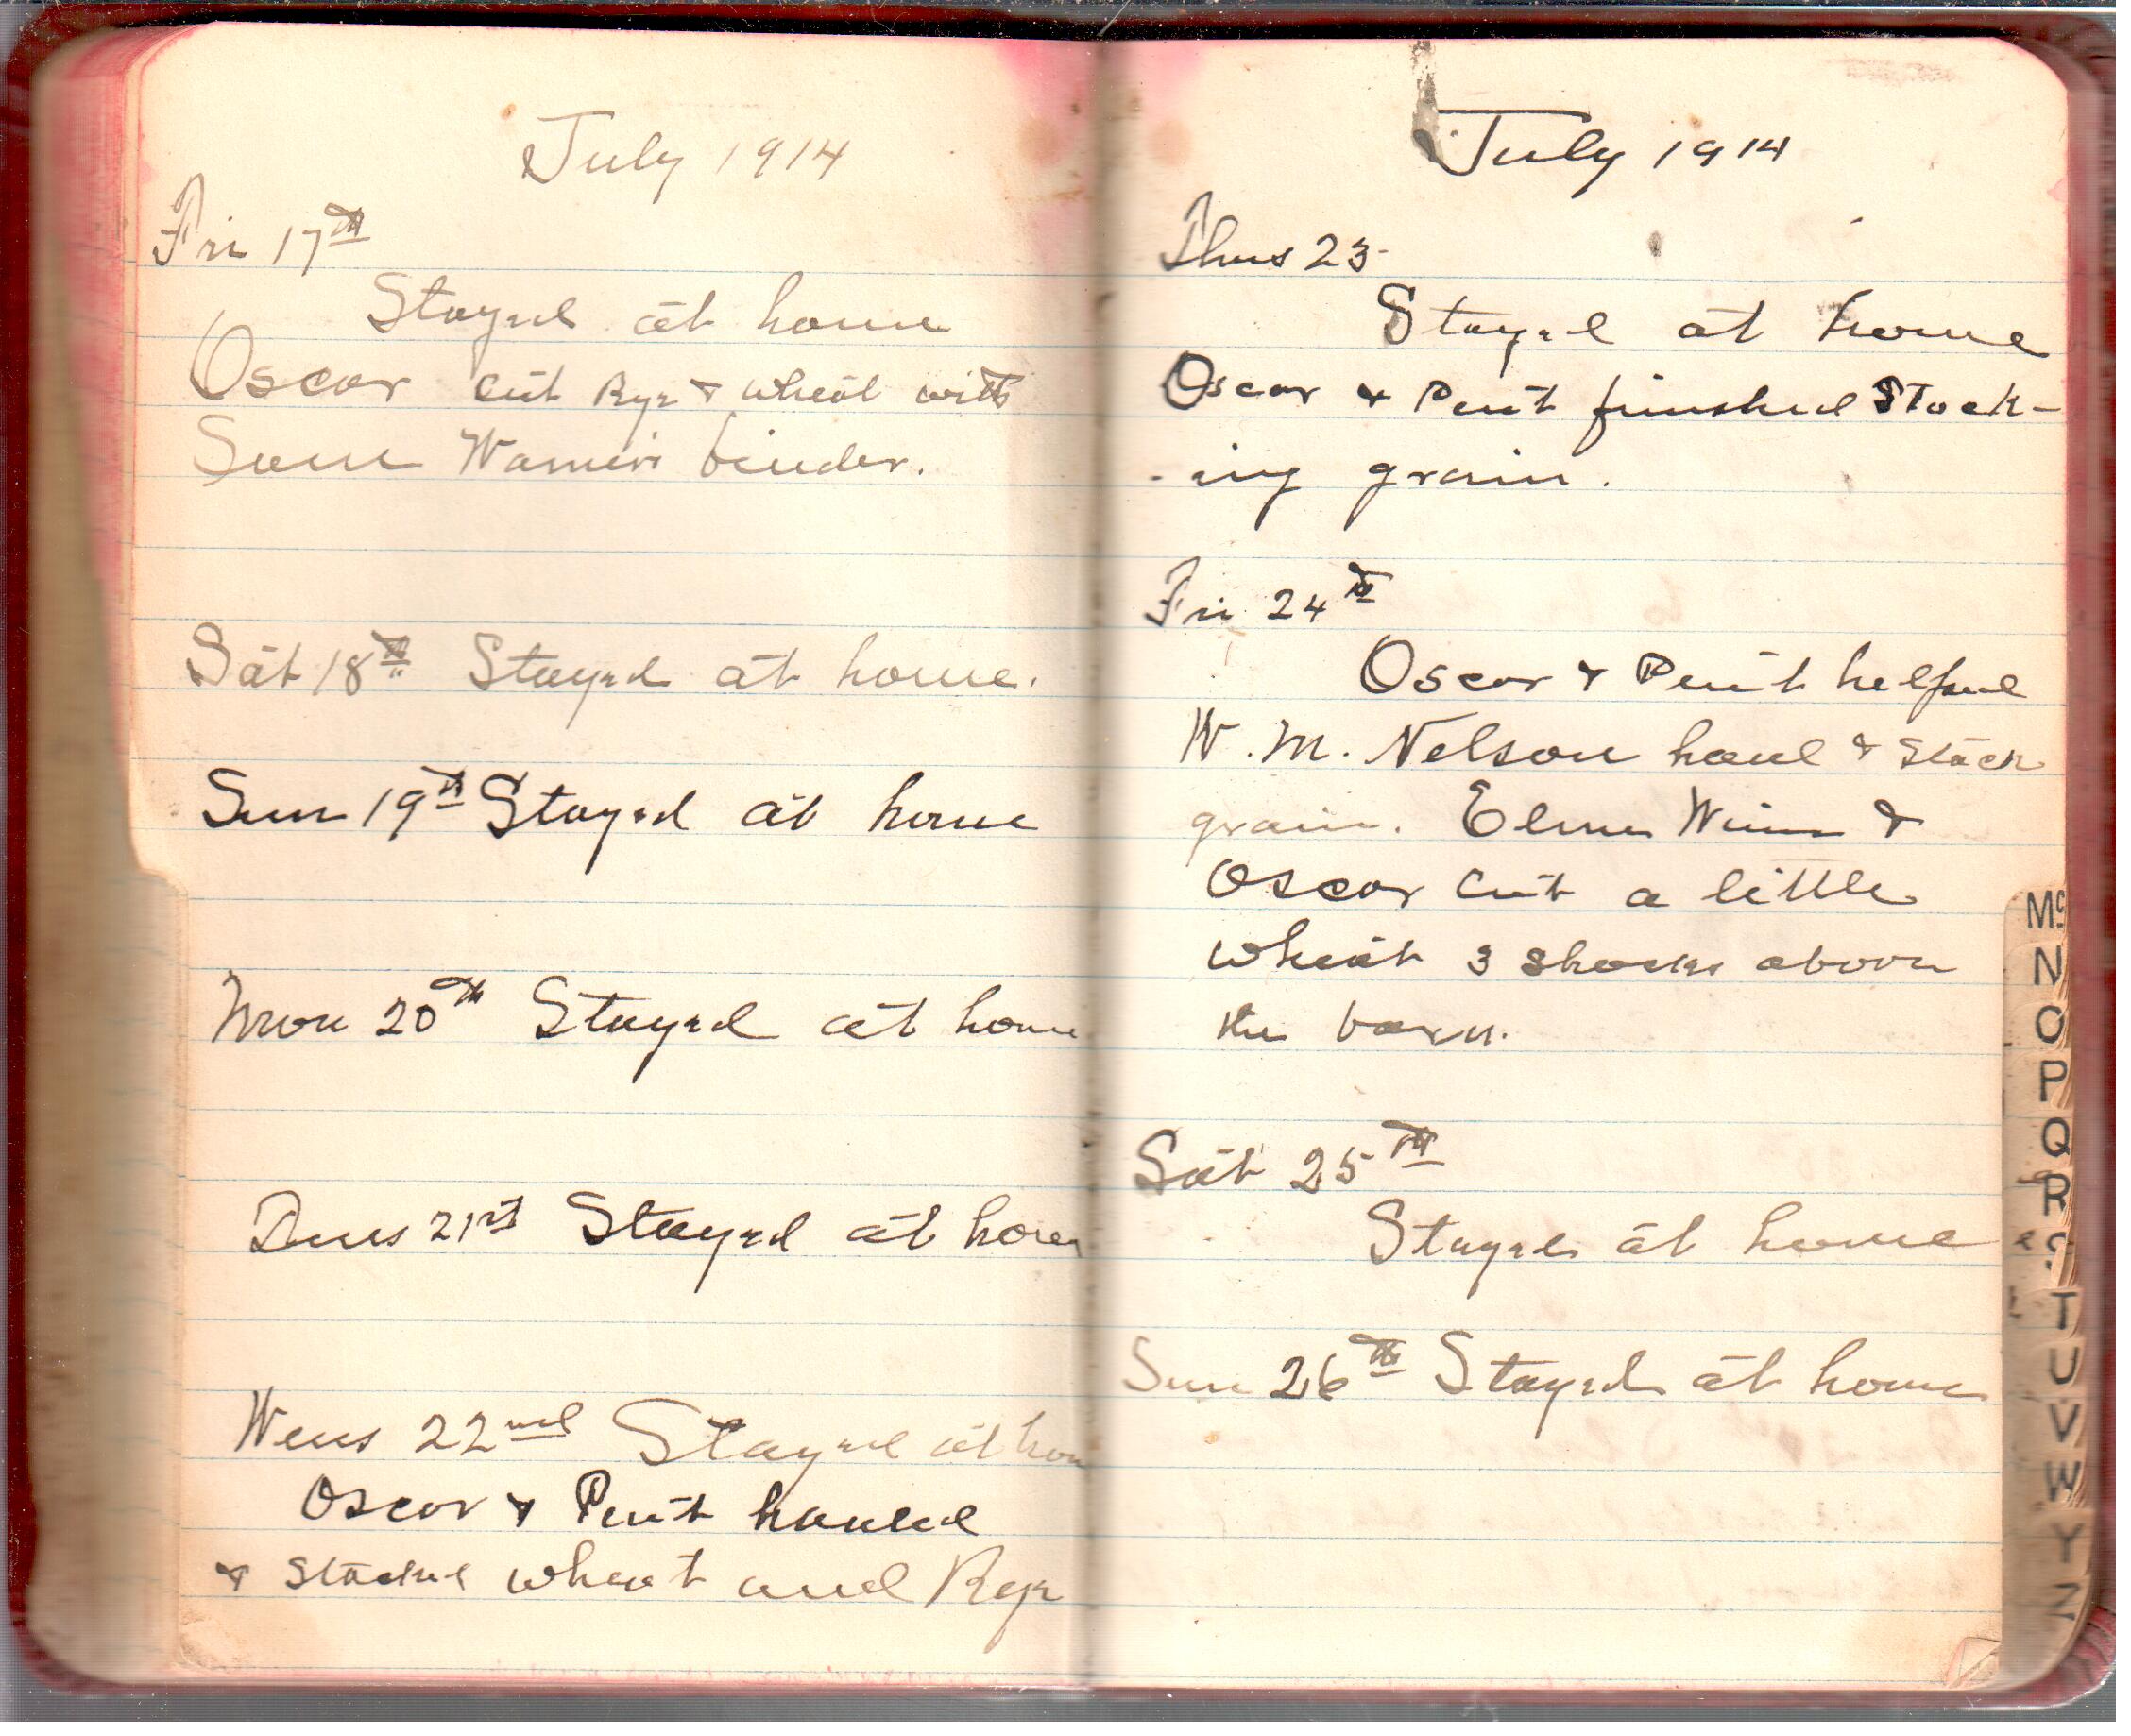 July 1914
Fri 17th
Stayed at home
Oscar cut Rye & wheat with
Sam binder.
Sat 18th Stayed at home.
Sun 19th Stayed at home
Mon 20th Stayed at home
Tues 21st Stayed at home
Wens 22nd Stayed at hom
Oscar & hauled
& Stacked wheat and Rye
July 1914
Thus 23
Stayed at home
Oscar & finished Stack-
-ing grain.
Fri 24th
Oscar & helped
W. M. Nelson haul & Stack
grain. Elmer &
Oscar cut a little
wheat 3 shocks above
the barn.
Sat 25th
Stayed at home
Sun 26th Stayed at home
Mc
N
O
P
Q
R
S
T
U
V
W
Y
Z